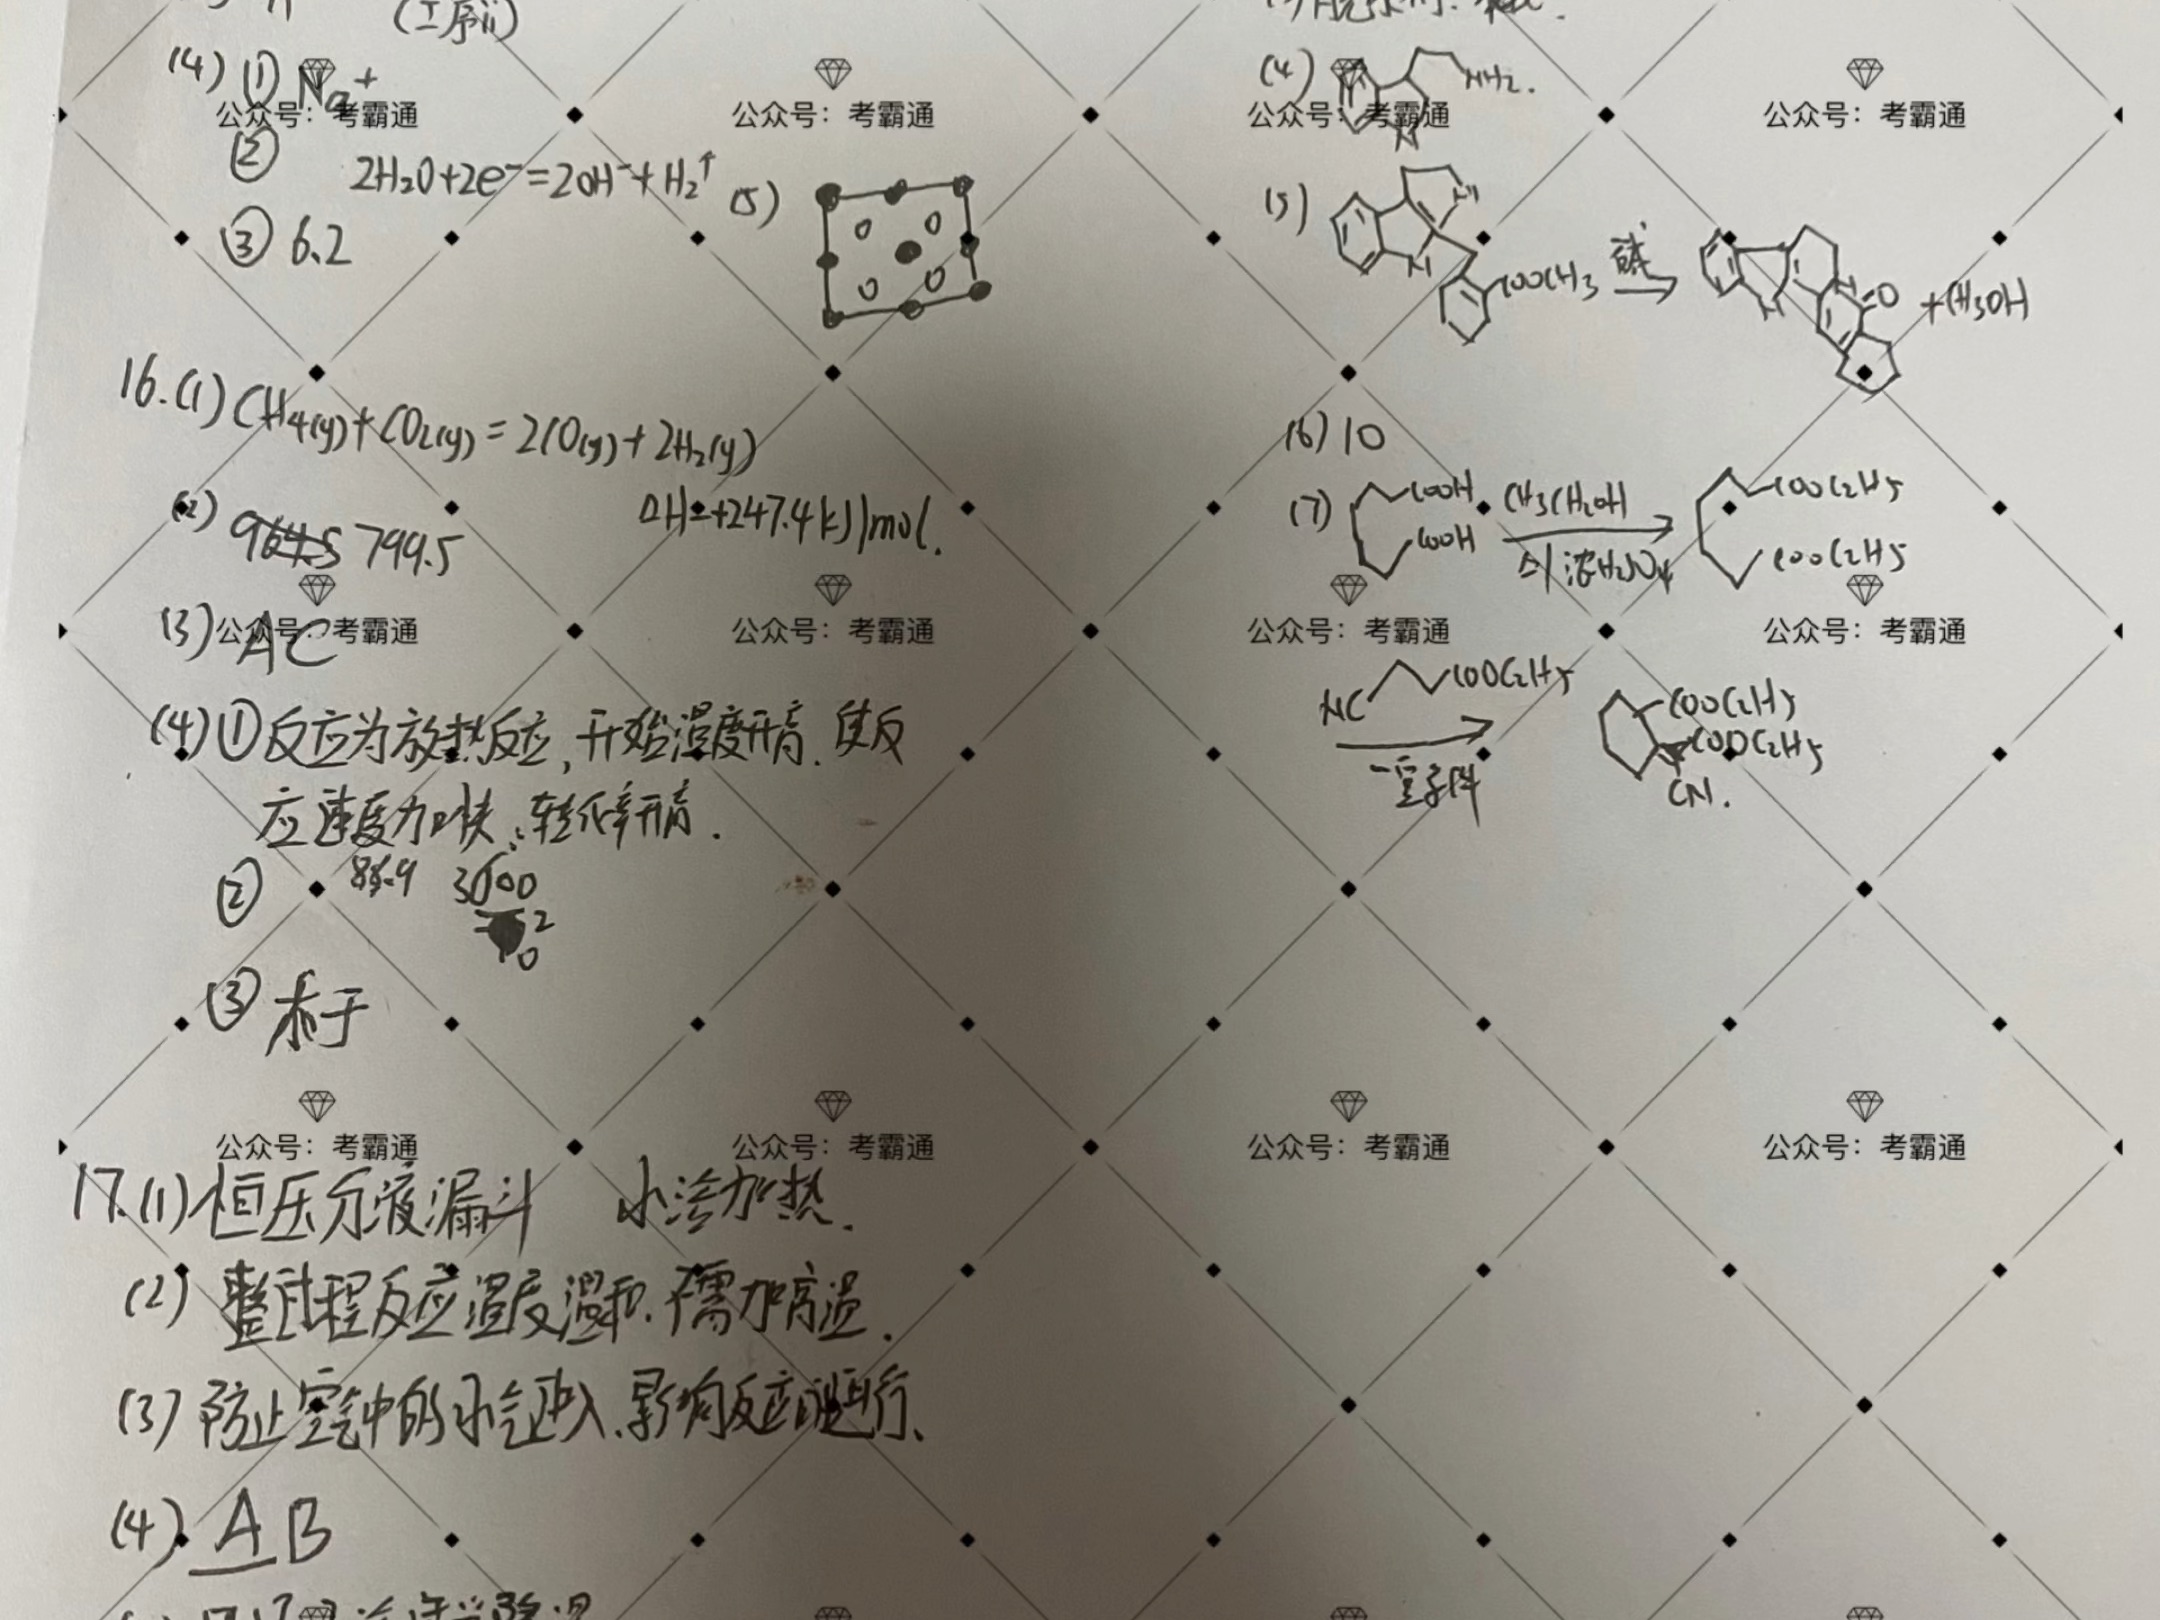 (工序ii)
(4) ① Na+
② 2H₂O+2e⁻=2OH⁻+H₂↑
③ 6.2
(5)
16.(1) CH₄(g)+CO₂(g)=2CO(g)+2H₂(g)
ΔH=+247.4kJ/mol.
(2) 799.5
(3) AC
(4) ① 反应为放热反应,开始温度升高.使反
应速度加快,转化率升高.
② 3000
③
17.(1) 恒压分液漏斗 水浴加热.
(2) 整过程反应温度温和.不需加高温.
(3) 防止空气中的水气进入.影响反应进行.
(4) AB
(4) NH₂.
N
(5) N N COOCH₃ → N N O +CH₃OH
(6) 10
(7) COOH COOH CH₃CH₂OH △/浓H₂SO₄ → COOC₂H₅ COOC₂H₅
NC COOC₂H₅ 一定条件 → COOC₂H₅ COOC₂H₅ CN.
公众号:考霸通
公众号:考霸通
公众号:考霸通
公众号:考霸通
公众号:考霸通
公众号:考霸通
公众号:考霸通
公众号:考霸通
公众号:考霸通
公众号:考霸通
公众号:考霸通
公众号:考霸通